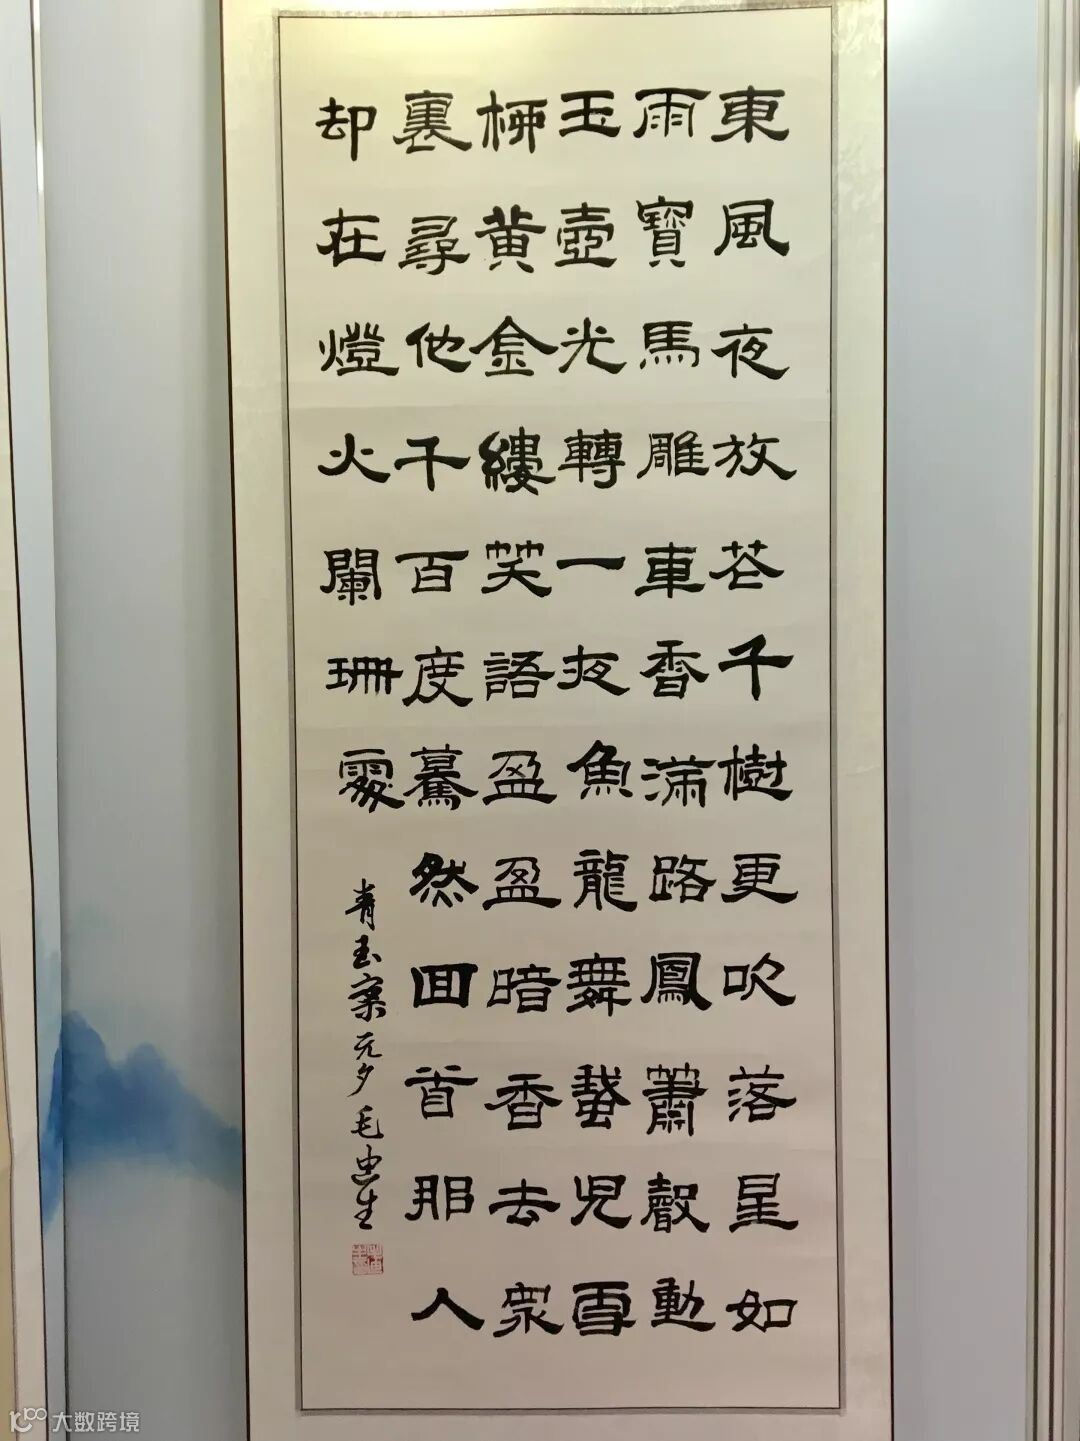 東風夜放花千樹更吹落星如
雨寶馬雕車香滿路鳳簫聲動
玉壺光轉一夜魚龍舞蛾兒雪
柳黄金縷笑語盈盈暗香去眾
裏尋他千百度驀然回首那人
却在燈火闌珊處
青玉案元夕毛忠生
大数跨境